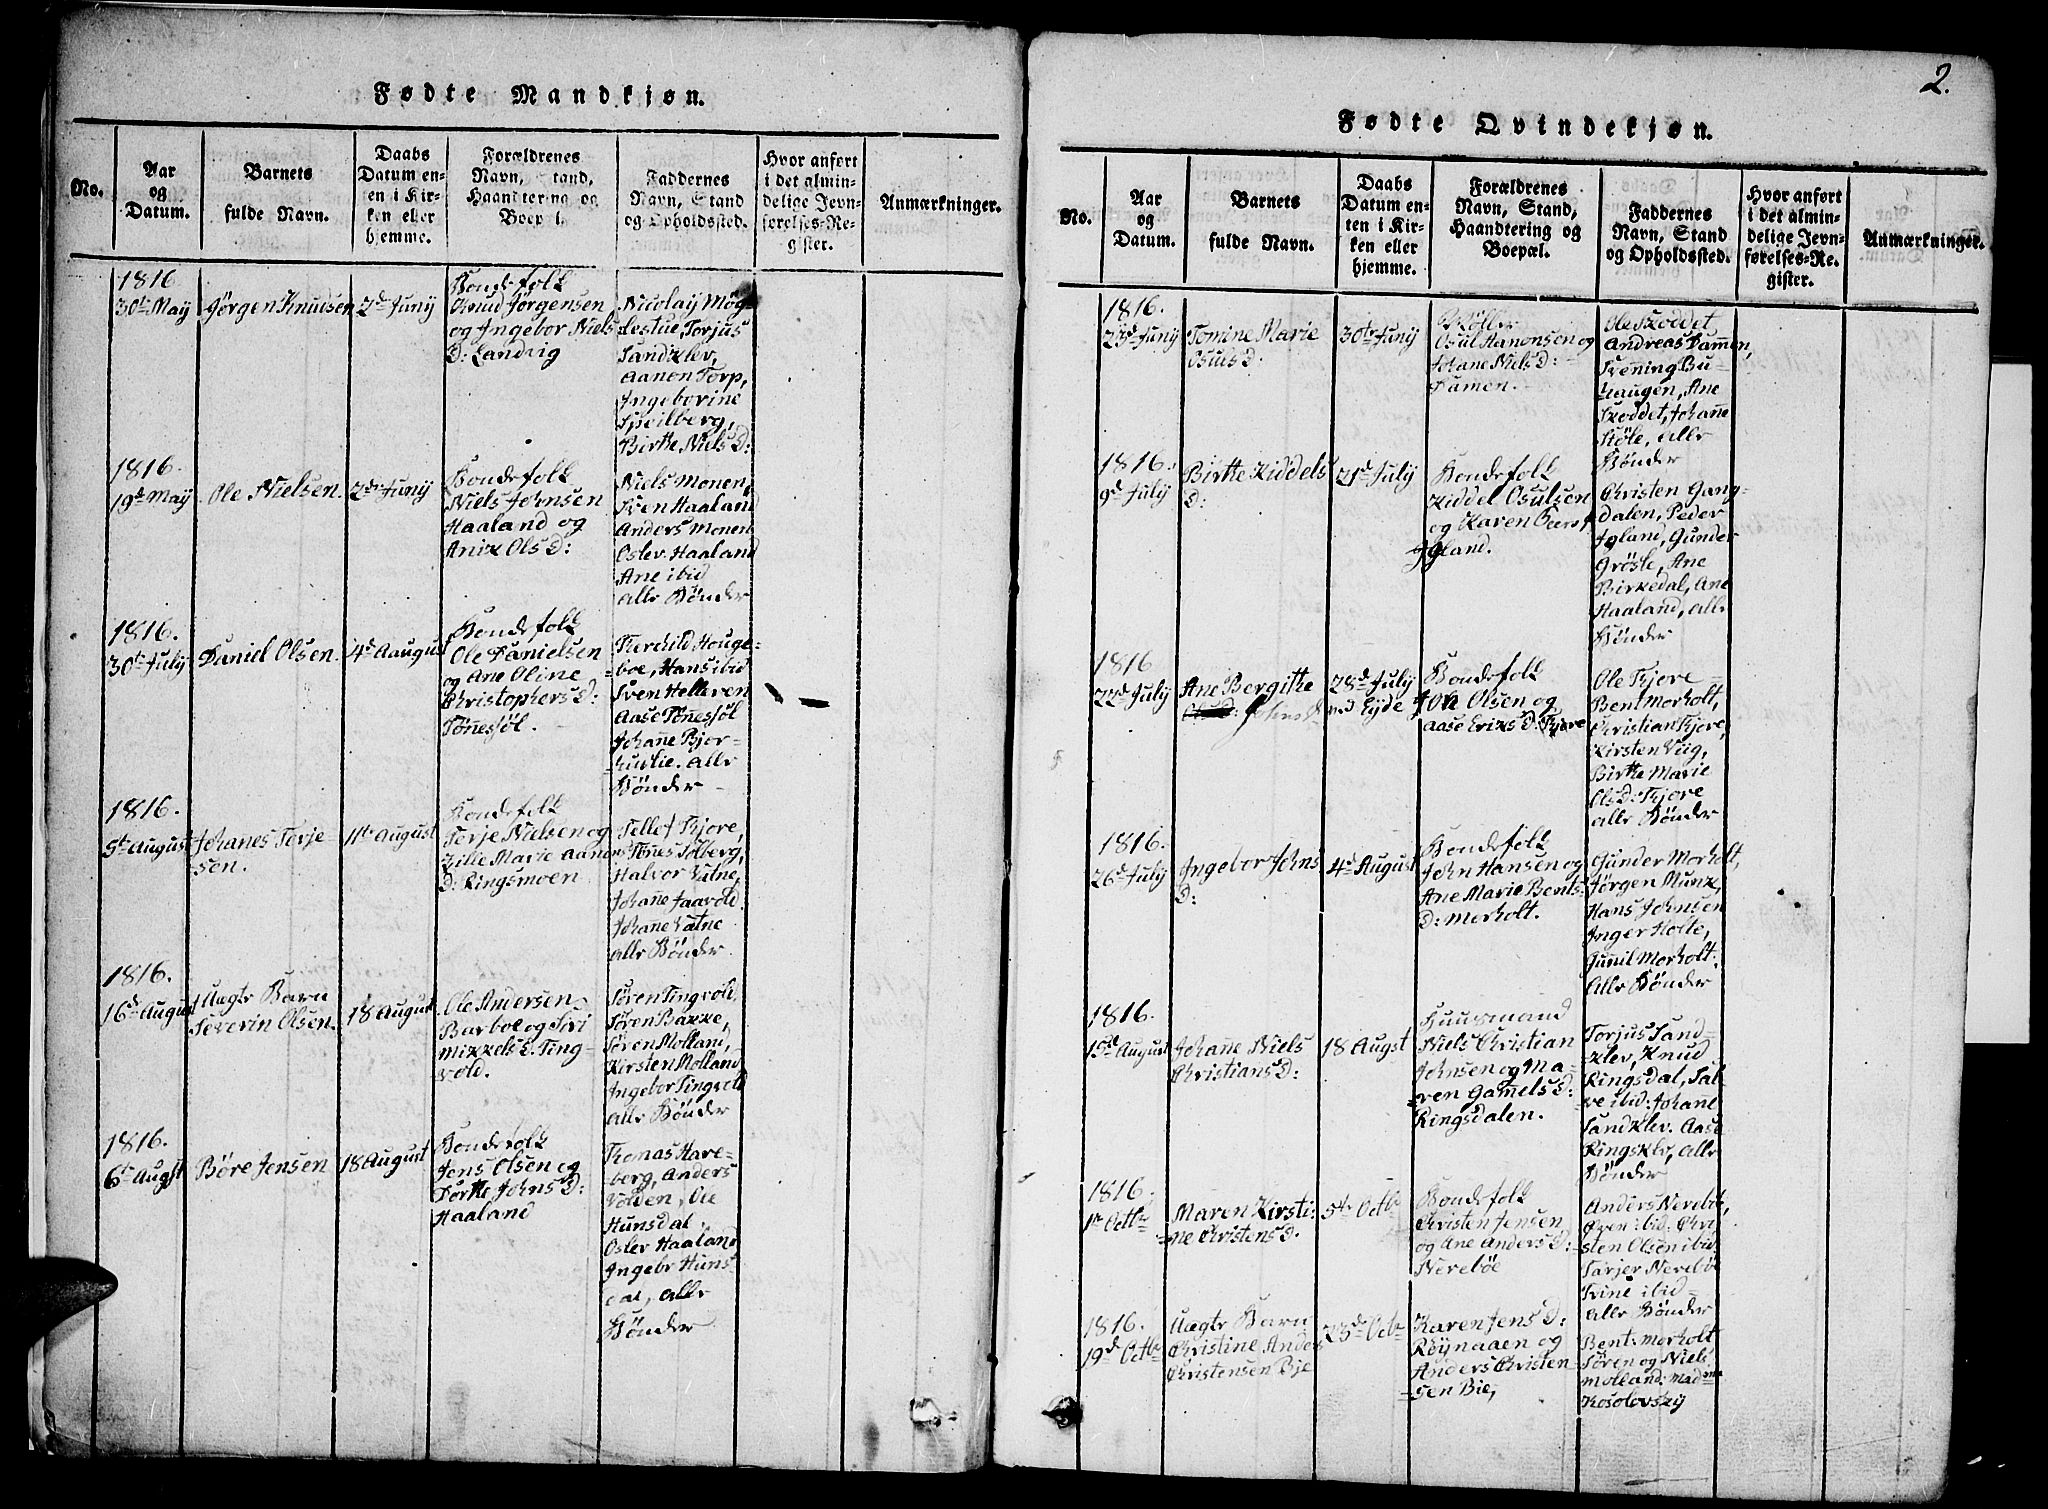 2.
Fødte Mandkjøn.
No.
Aar
og
Datum.
Barnets
fulde Navn.
Daabs
Datum en-
ten i Kir-
ken eller
hjemme.
Forældrenes
Navn, Stand,
Haandtering og
Boepæl.
Faddernes
Navn, Stand
og Opholdssted.
Hvor anført
i det almin-
delige Jevn-
førelses-Re-
gister.
Anmærkninger.
1816
30te May
Jørgen Knudsen
2den Juny
Bondefolk
Knud Jørgensen
og Ingebor Niels
D: Landvig
Nicolay Møg-
lestue, Torjus
Sandklev,
Aanon Torp,
Ingeborine
Speilberg,
Birthe Niels D:
1816.
19de May
Ole Nielsen.
2den Juny
Bondefolk
Niels Johnsen
Haaland og
Anix Ols D:
Niels Monen,
Sven Haaland
Anders Monen
Oslev Haaland
Ane ibid
alle Bønder
1816.
30te July
Daniel Olsen.
4de Aaugust
Bondefolk
Ole Danielsen
og Ane Oline
Christophers D:
Tønnesøl.
Therchild Houge-
boe, Hans ibid
Sven Helleren
Aase Tønnesøl
Johanne Bjor-
huslie. alle
Bønder
1816.
5te August
Johanes Terje-
sen.
11te August
Bondefolk
Terje Nielsen og
Lille Marie Aanons
D: Ringsmoen
Tellef Kjore,
Tønnes Solberg,
Halvor Vatne,
Johanne Jaavold.
Johanne Vatne
alle Bønder
1816.
16de August
Uægte Barn
Severin Olsen.
18 August
Ole Andersen
Barboe og Siri
Mikkels D. Ting-
vold.
Søren Tingvold,
Søren Bakke,
Søren Molland,
Kirsten Molland
Ingebor Tingvold
alle Bønder
1816.
6te Augst
Børe Jensen
18 August
Bondefolk
Jens Olsen og
Dorthe Johns D:
Haaland
Thomas Hare-
berg, Anders
Volden, Ole
Hunsdal,
Oslev Haaland
Ingebr Huns-
dal, alle
Bønder
Fødte Qvindekjøn.
No.
Aar
og
Datum.
Barnets
fulde Navn.
Daabs
Datum en-
ten i Kir-
ken eller
hjemme.
Forældrenes
Navn, Stand,
Haandtering og
Boepæl.
Faddernes
Navn, Stand
og Opholdssted.
Hvor anført
i det almin-
delige Jevn-
førelses-Re-
gister.
Anmærkninger.
1816.
23de Juny
Tomine Marie
Osuls D.
30te Juny
Møller
Osul Hanonsen og
Johane Niels D:
Dammen.
Ole Skoddet
Andreas Dammen,
Svening Bu-
haugen, Ane
Skoddet, Johanne
Støle, alle
Bønder
1816.
9de July
Birthe Kiddels
D:
21de July
Bondefolk
Kiddel Osulsen
og Karen Beers
Igland.
Christen Gang-
dalen, Peder
Igland, Gunder
Grøsle, Ane
Birkedal, Ane
Haaland, alle
Bønder
1816
22de July
Ane Bergithe
Johns D.
28de July
ved Eyde
Bondefolk
John Olsen og
Aase Eriks D: Kjore
Ole Kjore
Bent Morholt,
Christian Kjore,
Kirsten Viig,
Birthe Marie
Ols D: Kjore
alle Bønder
1816.
26de July
Ingebor Johns
D:
4de August
Bondefolk
John Hansen og
Ane Marie Bents
D: Morholt.
Gunder Morholt,
Jørgen Munk,
Hans Johnsen
Inger Holte,
Gunnil Morholt.
Alle Bønder
1816.
15de August
Johanne Niels
Christians D:
18 Augst
Huusmand
Niels Christian
Johnsen og Ma-
ren Gamels D:
Ringsdalen.
Torjus Sand-
klev, Knud
Ringsdal, Sal-
ve ibid: Johanne
Sandklev. Aase
Ringsklv, alle
Bønder
1816.
1te Octbr
Maren Kirsti-
ne Christens D.
5te Octbr
Bondefolk
Christen Jensen
og Ane Anders D:
Nerebøe
Anders Nerebøe,
Even ibid. Chri-
sten Olsen ibid
Tarjer Nerebø
Trine ibid
alle Bønder
1816.
19de Octbr
Uægte Barn
Christine Anders
Christensen Bje
23de Octbr
Karen Jens D:
Røynaaen og
Anders Christen-
sen Bie,
Bent: Morholt,
Søren og Niels
Molland: Madme
Kosolovsky